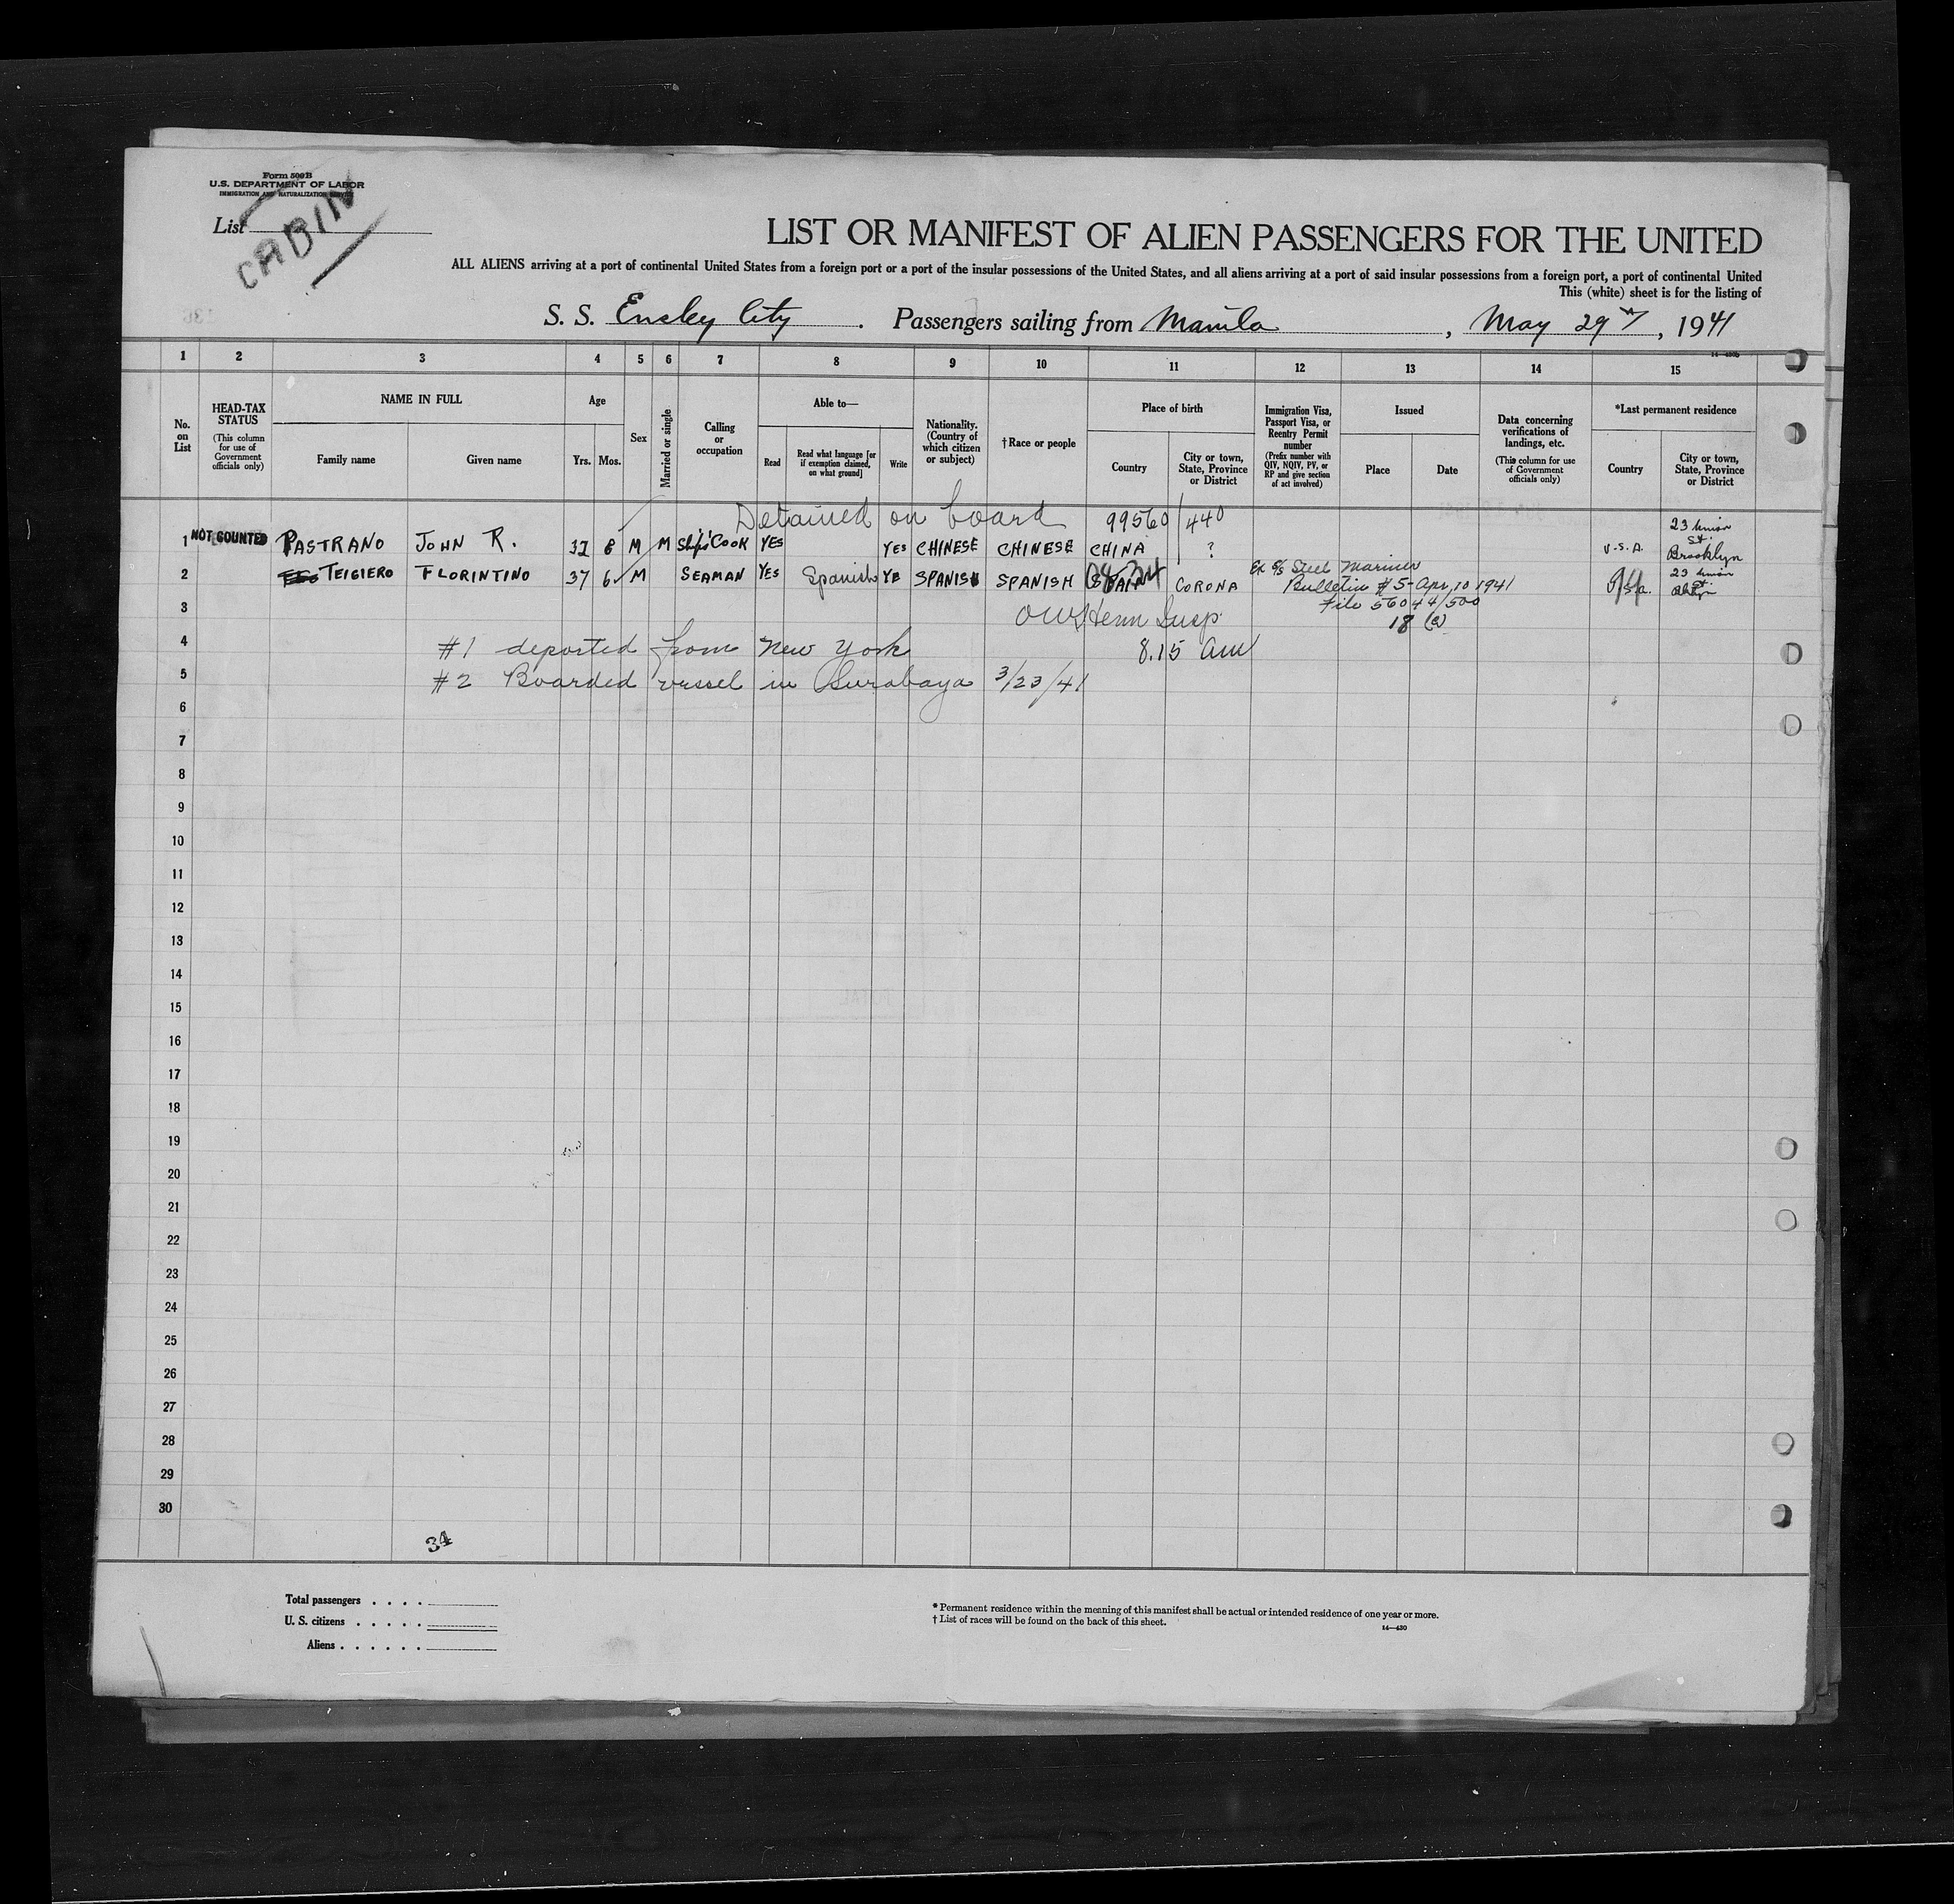 Form 500 B
U.S. DEPARTMENT OF LABOR
IMMIGRATION AND NATURALIZATION SERVICE
List
CABIN
LIST OR MANIFEST OF ALIEN PASSENGERS FOR THE UNITED
ALL ALIENS arriving at a port of continental United States from a foreign port or a port of the insular possessions of the United States, and all aliens arriving at a port of said insular possessions from a foreign port, a port of continental United
This (white) sheet is for the listing of
S. S. Ensley City . Passengers sailing from Manila , May 29, 1941
14—430b
1 2 3 4 5 6 7 8 9 10 11 12 13 14 15
No. on List
HEAD-TAX STATUS (This column for use of Government officials only)
NAME IN FULL
Family name
Given name
Age
Yrs. Mos.
Sex
Married or single
Calling or occupation
Able to—
Read
Read what language [or if exemption claimed, on what ground]
Write
Nationality. (Country of which citizen or subject)
†Race or people
Place of birth
Country
City or town, State, Province or District
Immigration Visa, Passport Visa, or Reentry Permit number (Prefix number with QIV, NQIV, PV, or RP and give section of act involved)
Issued
Place
Date
Data concerning verifications of landings, etc. (This column for use of Government officials only)
*Last permanent residence
Country
City or town, State, Province or District
Detained on board 99560/440
1 NOT COUNTED PASTRANO JOHN R. 37 8 M M Ship's COOK YES YES CHINESE CHINESE CHINA ? U.S.A. 23 Union St. Brooklyn
2 TEIGIERO FLORINTINO 37 6 M SEAMAN YES Spanish YE SPANISH SPANISH SPAIN CORONA Ex S/S Steel Mariner 23 Union St.
Bulletin #5-Apr, 10 1941
3 Insp. File 56044/500
18 (a)
4 #1 deported from New York 8.15 am
5 #2 Boarded vessel in Surabaya 3/23/41
6
7
8
9
10
11
12
13
14
15
16
17
18
19
20
21
22
23
24
25
26
27
28
29
30
34
Total passengers . . . .
U. S. citizens . . . . .
Aliens . . . . . .
* Permanent residence within the meaning of this manifest shall be actual or intended residence of one year or more.
† List of races will be found on the back of this sheet.
14—430